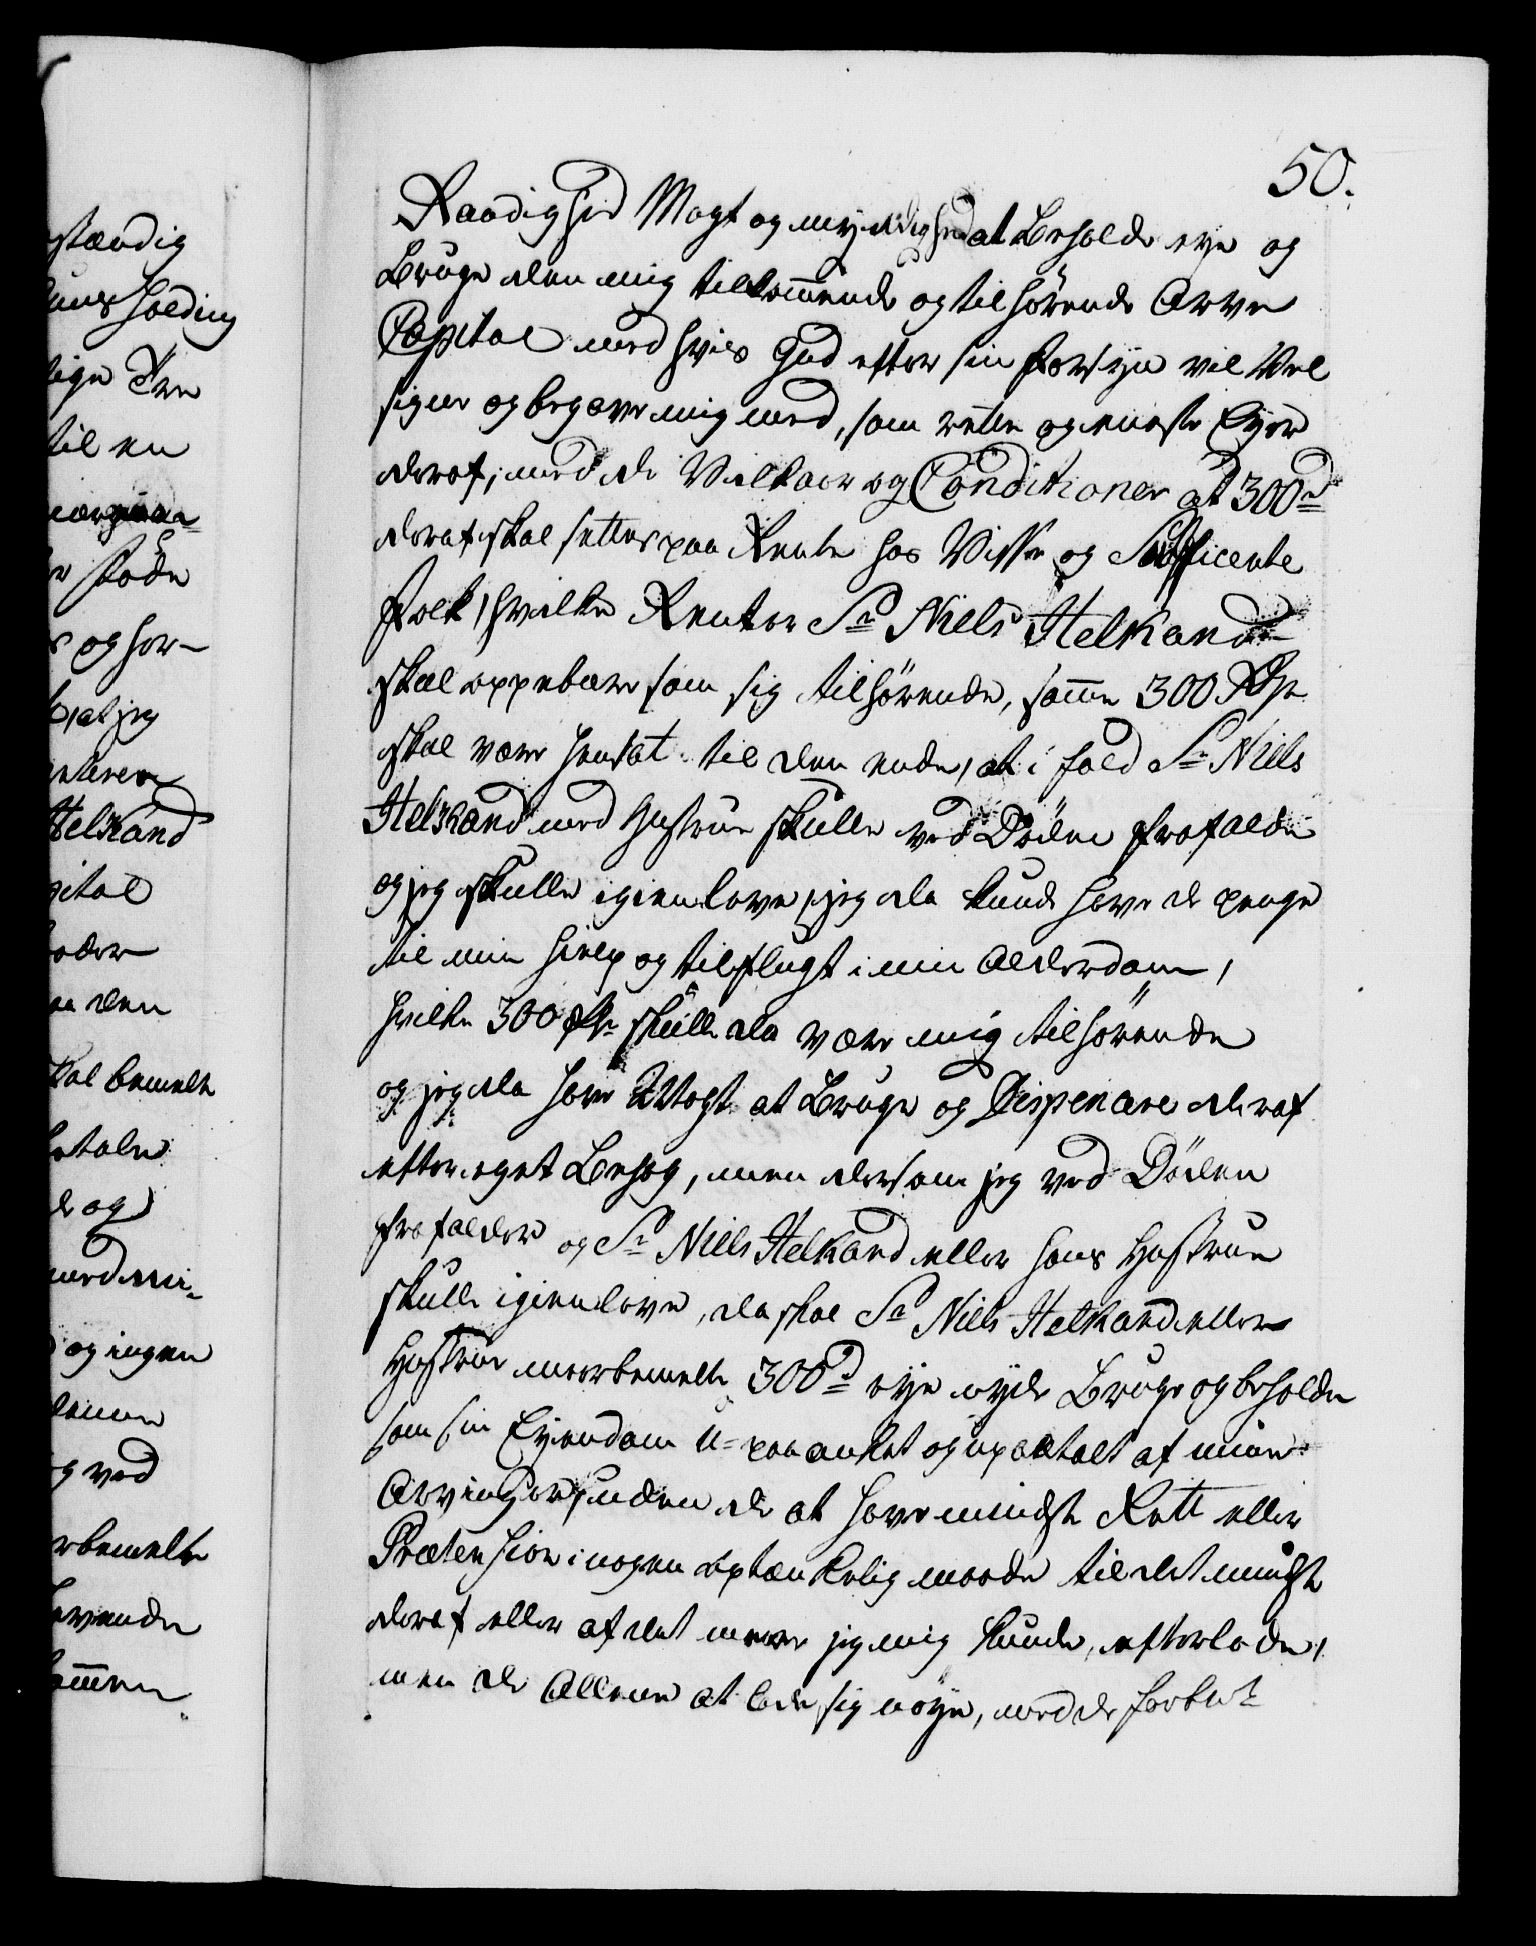 50.
Raadighed Magt og myndighed at Beholde eye og
Bruge den mig tilkom̅ende og tilhörende Arve
Capital med hvis Gud efter sin forsyn vil Vel
signe og begave mig med, som rette og eneste Eyer
deraf, med de Vilkaar og Conditioner at 300 d
deraf skal settes paa Rente hos Visse og Sufficente
folk, hvilke Renter Sr Niels Helkand
skal oppebære som sig tilhörende, sam̅e 300 Rdr
skal være hensat til den ende, at i fald Sr Niels
Helkand med Hustrue skulle ved Döden frafalde
og jeg skulle igienleve, jeg da kunde have de penge
til min hielp og tilflugt i min Alderdom,
hvilke 300 Rdr skulle da være mig tilhörende
og jeg da have Magt at Bruge og Dispenare deraf
efter eget Behag, men dersom jeg ved Döden
frafalder og Sr Niels Helkand eller hans Hustrue
skulle igienleve, da skal Sr Niels Helkand eller
Hustrue meerbemelte 300 d eye nyde Bruge og beholde
som sin Eyendom u-paaanket og upaatalt af mine
Arvinger, uden de at have mindste Rett eller
Prætension i nogen optænkelig maade til det mindste
deraf eller af det mere jeg mig kunde efterlade,
men de Allene at lade sig nöye, med de
stændig
holding
tige
til en
og for-
at jeg
Helkand
pital
den
skal bemelte
betale
de og
og ingen
og ved
rbemelte
levende